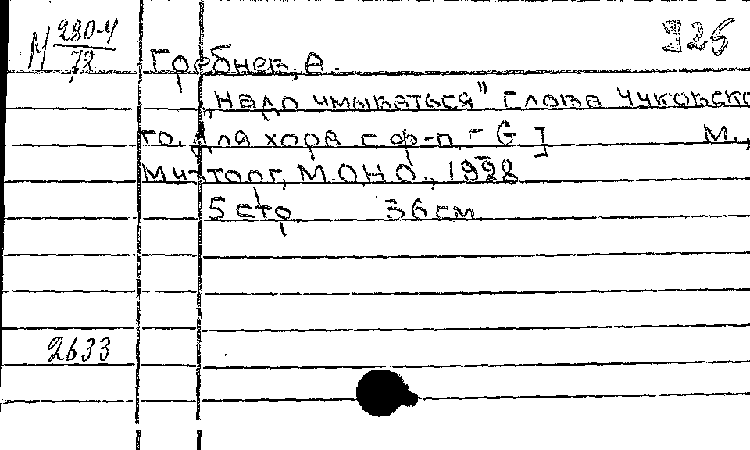 М 280-4
78
926
Гребнев, А.
„Надо умываться" слова Чуковско
го. Для хора с ф-п. [-G-] М.,
Музторг, М.О.Н.О., 1928
5 стр. 36 см.
2633